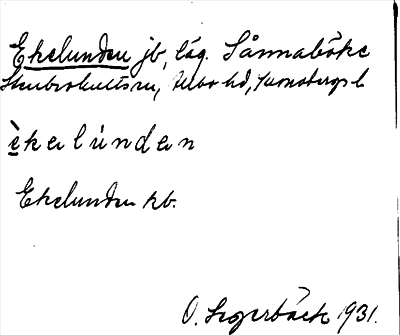 Ekelunden jb, läg. Sånnaböke
Stenbrohults sn, Allbo hd, Kronobergs l
èkəlúndən
Ekelunden kb.
O. Segerbäck 1931.